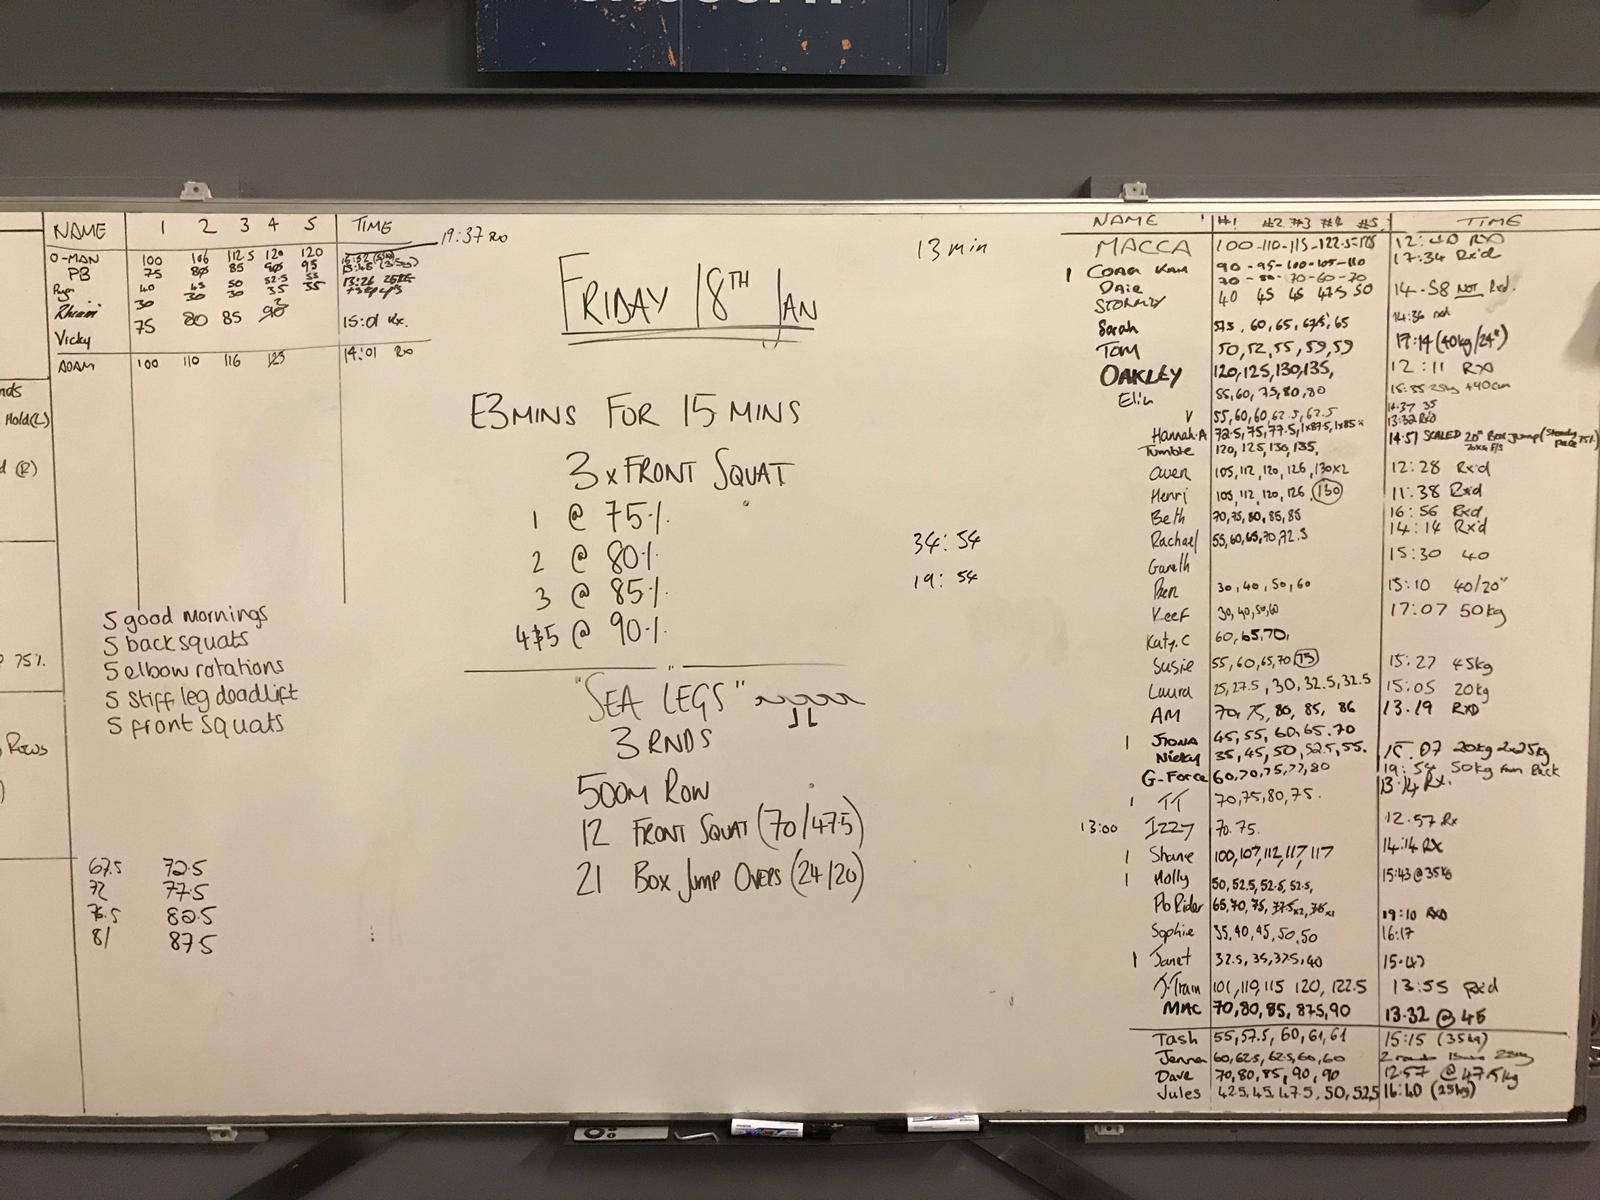 NAME 1 2 3 4 5 TIME
19:37 RX
O-MAN 100 106 112.5 120 120
PB 75 80 85 90 95
40 45 50 52.5 55
Rhian 30 30 30 35 35
Vicky 75 80 85 90 15:01 Rx.
ADAM 100 110 116 123 14:01 Rx
nds
Hold(L)
d (R)
75%
Rows
5 good mornings
5 backsquats
5 elbow rotations
5 stiff leg deadlift
5 front squats
67.5 72.5
72 77.5
76.5 82.5
81 87.5
FRIDAY 18TH JAN
E3MINS FOR 15 MINS
3 x FRONT SQUAT
1 @ 75%
2 @ 80%
3 @ 85%
4+5 @ 90%
"SEA LEGS"
3 RNDS
500M ROW
12 FRONT SQUAT (70/47.5)
21 BOX JUMP OVERS (24/20)
13 min
34:54
19:54
NAME #1 #2 #3 #4 #5 TIME
MACCA 100-110-115-122.5-125
90-95-100-105-110 17:34 Rx'd
70-80-70-60-70
STORMZY 40 45 45 47.5 50 14-58 NOT Rxd.
Sarah 57.5, 60, 65, 67.5, 65 14:36 rxd
Tom 50, 52, 55, 59, 59 17:14 (40kg/24")
OAKLEY 120, 125, 130, 135, 12:11 RXD
Elin 55, 60, 75, 80, 80
V 55, 60, 60, 62.5, 62.5 14:37 35
Hannah.A 72.5, 75, 77.5, 1x87.5, 1x85 13:32 Rxd
Tumble 120, 125, 130, 135, 14:51 SCALED 20" Box Jump (Steady pace 75%) 70kg F/S
Owen 105, 112, 120, 126, 130x2 12:28 Rx'd
Henri 105, 112, 120, 126, 130 11:38 Rxd
Beth 70, 75, 80, 85, 85 16:56 Rxd
Rachael 55, 60, 65, 70, 72.5 14:14 Rx'd
Gareth 15:30 40
30, 40, 50, 60 15:10 40/20"
Keef 30, 40, 50, 60 17:07 50kg
Katy.C 60, 65, 70,
Susie 55, 60, 65, 70 75 15:27 45kg
Laura 25, 27.5, 30, 32.5, 32.5 15:05 20kg
AM 70, 75, 80, 85, 86 13.19 RXD
1 FIONA 45, 55, 60, 65. 70
Nicky 35, 45, 50, 52.5, 55. 15.07 20kg 2x25kg
G-Force 60, 70, 75, 77, 80 19:54 50kg from Back
13:14 Rx.
1 TT 70, 75, 80, 75.
13:00 Izzy 70. 75. 12.57 Rx
1 Shane 100, 107, 112, 117, 117 14:14 RX
1 Holly 50, 52.5, 52.5, 52.5, 15:43 @ 35kg
Po Rider 65, 70, 75, 77.5x2, 19:10 RXD
Sophie 35, 40, 45, 50, 50 16:17
1 Janet 32.5, 35, 37.5, 40 15.47
J-Train 101, 110, 115 120, 122.5 13:55 Rxd
MAC 70, 80, 85, 87.5, 90 13.32 @ 45
Tash 55, 57.5, 60, 61, 61 15:15 (35kg)
Jenna 60, 62.5, 62.5, 60, 60
Dave 70, 80, 85, 90, 90 12:57 @ 47.5kg
Jules 42.5, 45, 47.5, 50, 52.5 16:40 (25kg)